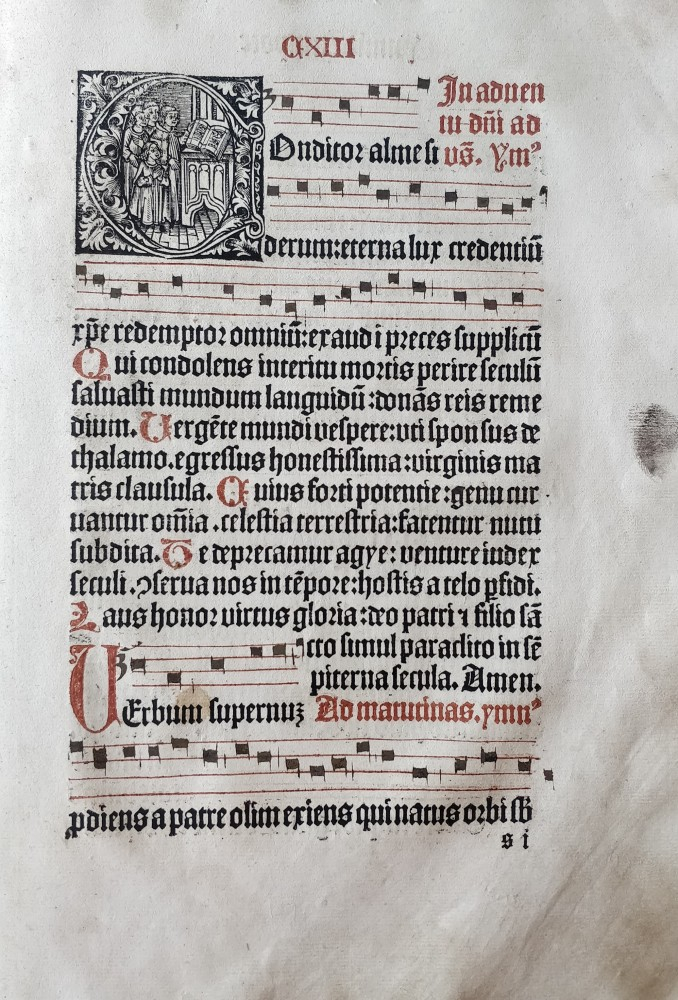 CXIII
In aduen
tu dn̄i ad
Onditor alme si vs̄. Ymꝰ
derum:eterna lux credentiū
xp̄e redemptor omniū:exaudi preces supplicū
Qui condolens interitu mortis perire seculū
saluasti mundum languidū:donās reis reme
dium. Uergēte mundi vespere:vti sponsus de
thalamo.egressus honestissima:virginis ma
tris clausula. Cuius forti potentie:genu cur
uantur om̄ia.celestia terrestria:fatentur nutu
subdita. Te deprecamur agye:venture iudex
seculi.ꝯserua nos in tēpore:hostis a telo ꝑfidi.
Laus honor virtus gloria:deo patri ⁊ filio sā
cto simul paraclito in sē
piterna secula. Amen.
UErbum supernuꝫ Ad matutinas.ymnꝰ
ꝓdiens a patre olim exiens qui natus orbi sb̄
s i